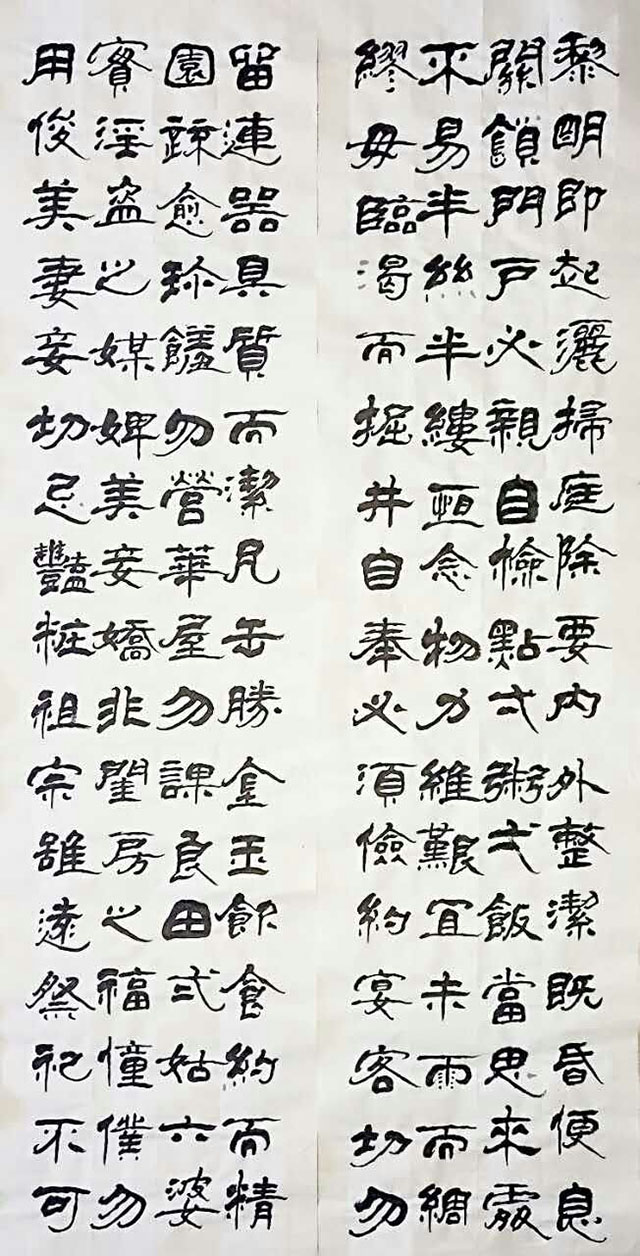 黎明即起灑掃庭除要內外整潔既昏便息
關鎖門戶必親自檢點弌粥弌飯當思來處
不易半絲半縷恒念物力維艱宜未雨而綢
繆毋臨渴而掘井自奉必須儉約宴客切勿
留連器具質而潔瓦缶勝金玉飲食約而精
園疏愈珍饈勿營華屋勿謀良田弎姑六婆
實淫盜之媒婢美妾嬌非閨房之福僮僕勿
用俊美妻妾切忌豔粧祖宗雖遠祭祀不可